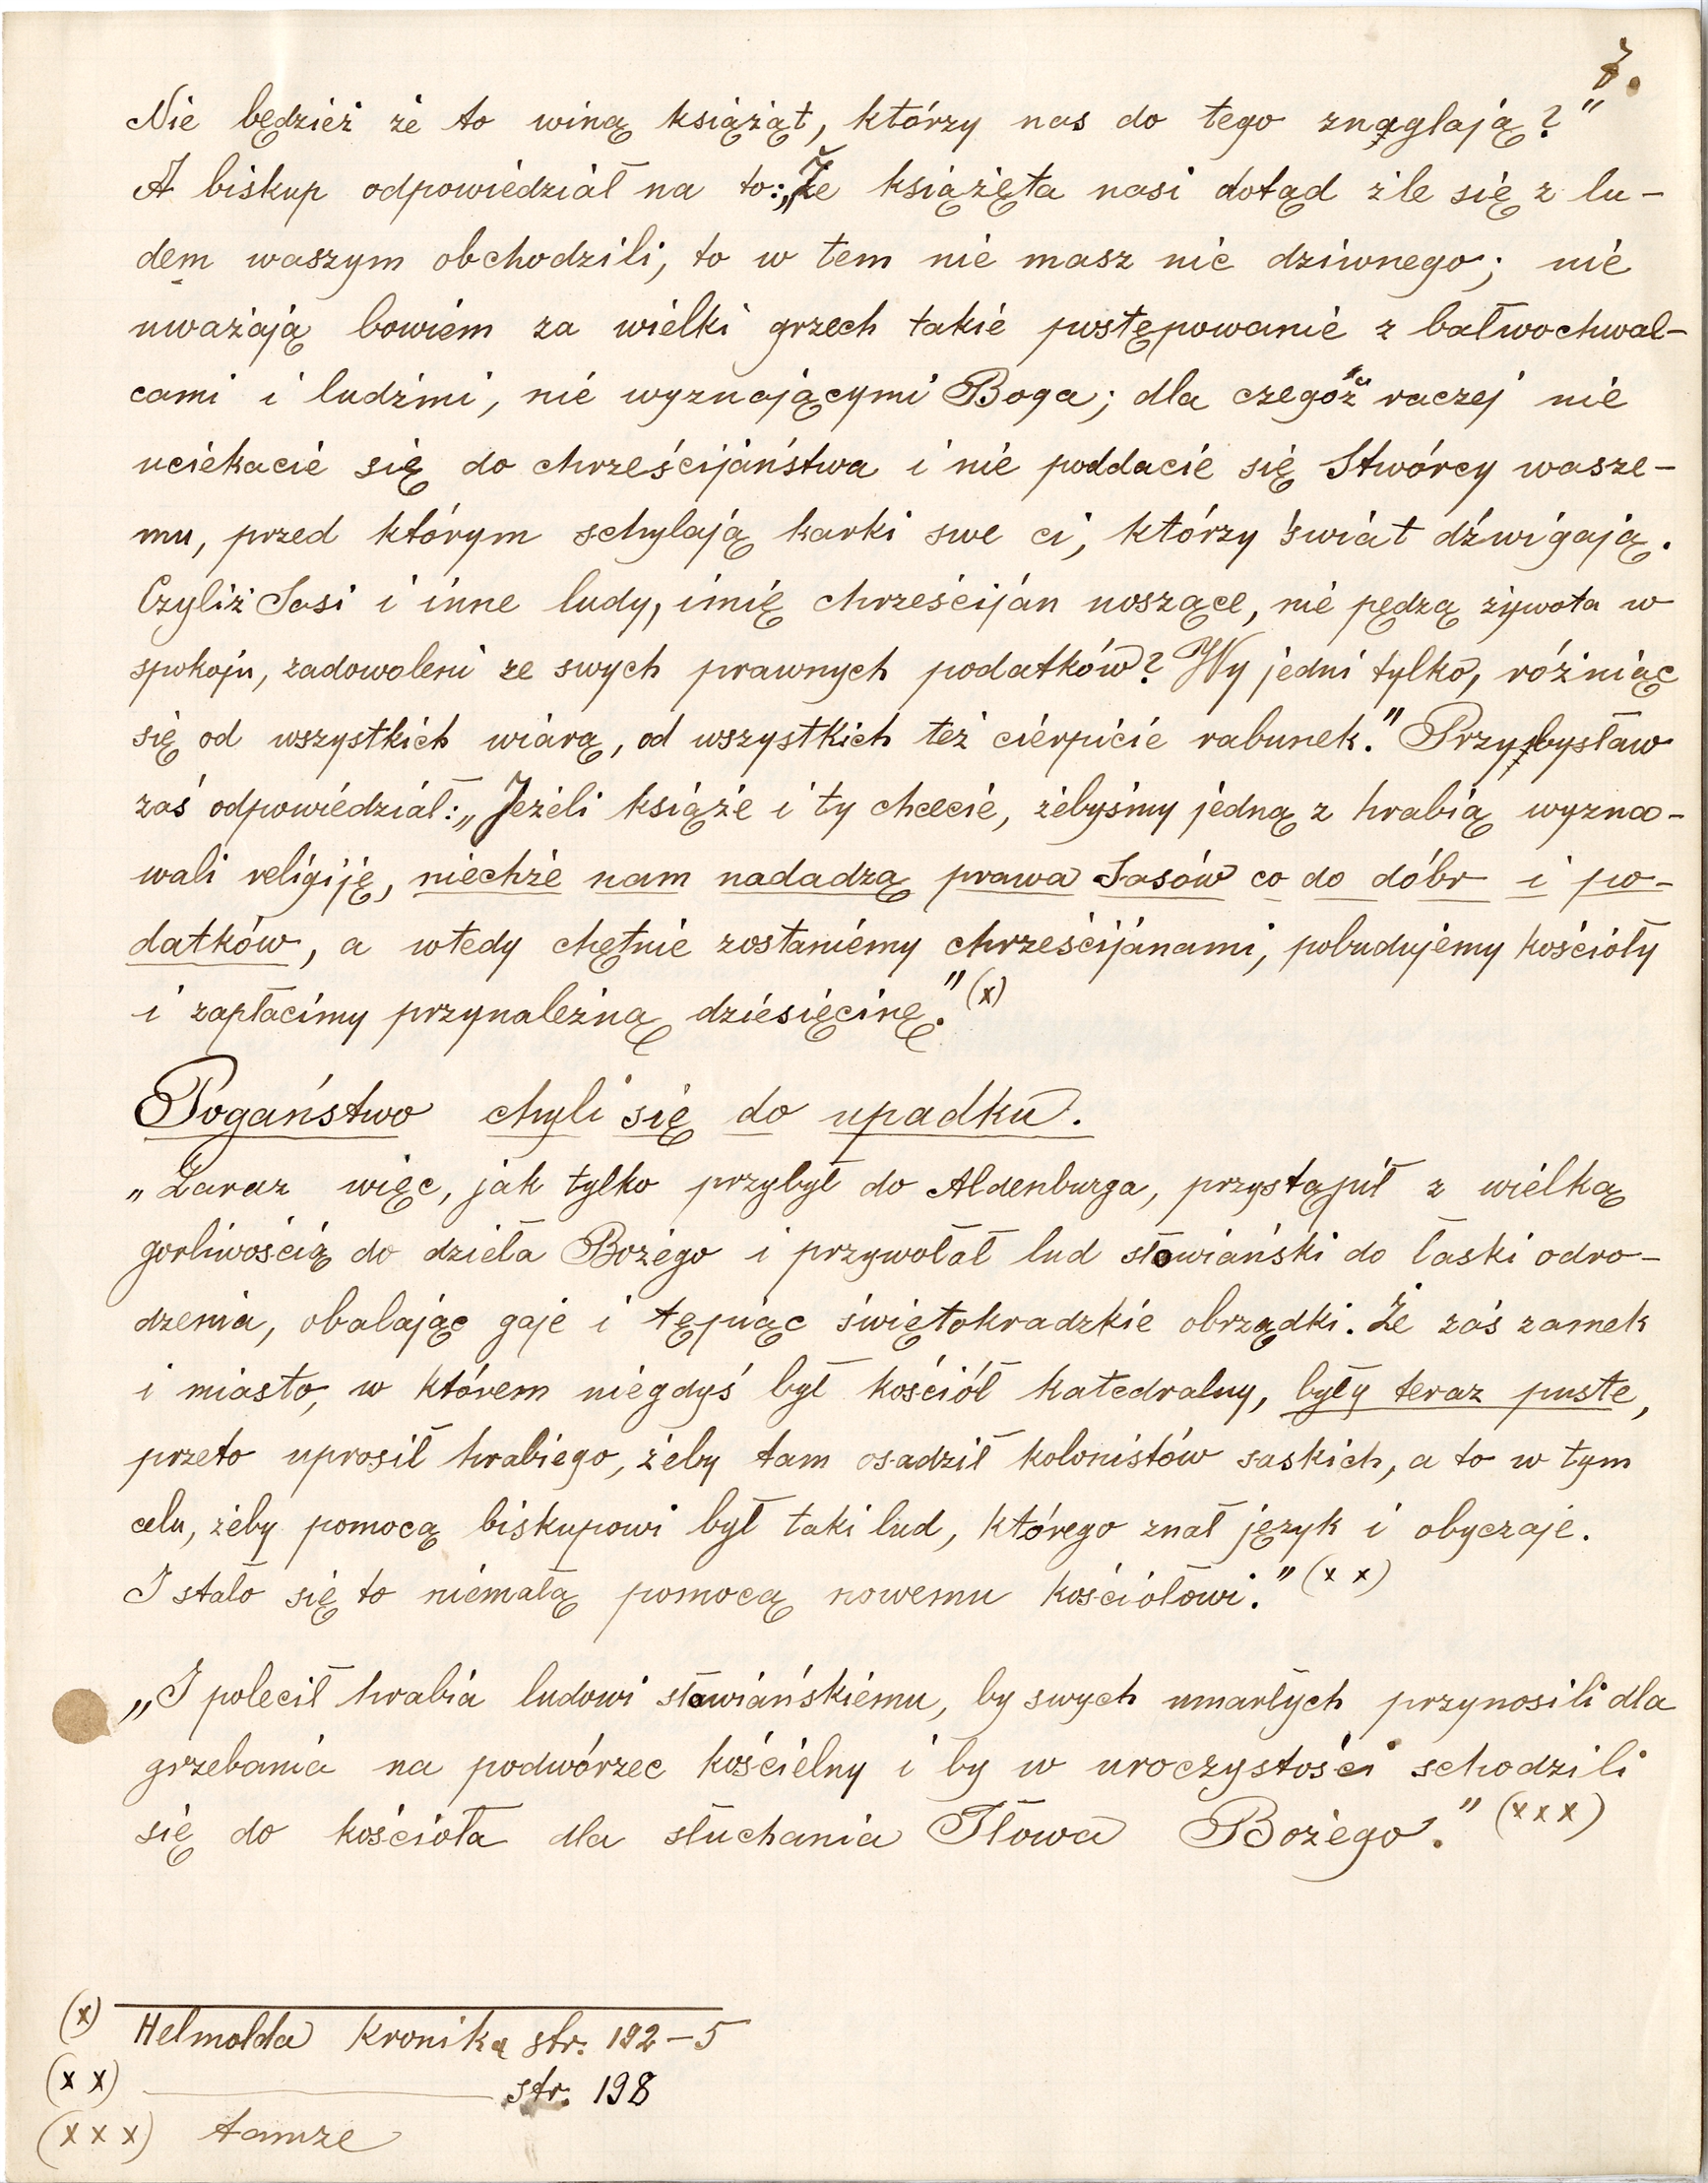 7.
Nie będzież że to winą książąt, którzy nas do tego znaglają?"
A biskup odpowiedział na to: „Że książęta nasi dotąd źle się z lu-
dem waszym obchodzili, to w tem nie masz nic dziwnego; nie
uważają bowiem za wielki grzech takie postępowanie z bałwochwal-
cami i ludźmi, nie wyznającymi Boga; dla czegóż raczej nie
uciekacie się do chrześcijaństwa i nie poddacie się Stwórcy wasze-
mu, przed którym schylają karki swe ci, którzy świat dźwigają.
Czyliż Sasi i inne ludy, imię chrześcijan noszące, nie pędzą żywota w
spokoju, zadowoleni ze swych prawnych podatków? Wy jedni tylko, różniąc
się od wszystkich wiarą, od wszystkich też cierpicie rabunek." Przybysław
zaś odpowiedział: „Jeżeli książe i ty chcecie, żebyśmy jedną z hrabią wyzna-
wali religiję, niechże nam nadadzą prawa Sasów co do dóbr i po-
datków, a wtedy chętnie zostaniemy chrześcijanami, pobudujemy kościoły
i zapłacimy przynależną dziesięcinę." (x)
Pogaństwo chyli się do upadku.
„Zaraz więc, jak tylko przybył do Aldenburga, przystąpił z wielką
gorliwością do dzieła Bożego i przywołał lud słowiański do łaski odro-
dzenia, obalając gaje i tępiąc świętokradzkie obrządki. Że zaś zamek
i miasto, w którem niegdyś był kościół katedralny, były teraz puste,
przeto uprosił hrabiego, żeby tam osadził kolonistów saskich, a to w tym
celu, żeby pomocą biskupowi był taki lud, którego znał język i obyczaje.
I stało się to niemałą pomocą nowemu kościołowi." (x x)
„I polecił hrabia ludowi sławiańskiemu, by swych umarłych przynosili dla
grzebania na podwórzec kościelny i by w uroczystości schodzili
się do kościoła dla słuchania Słowa Bożego." (x x x)
(x) Helmolda Kronika str. 192-5
(x x) str. 198
(x x x) tamże